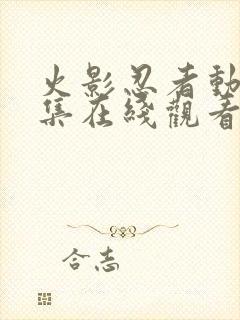 火影忍者動
集在綫觀看
合志